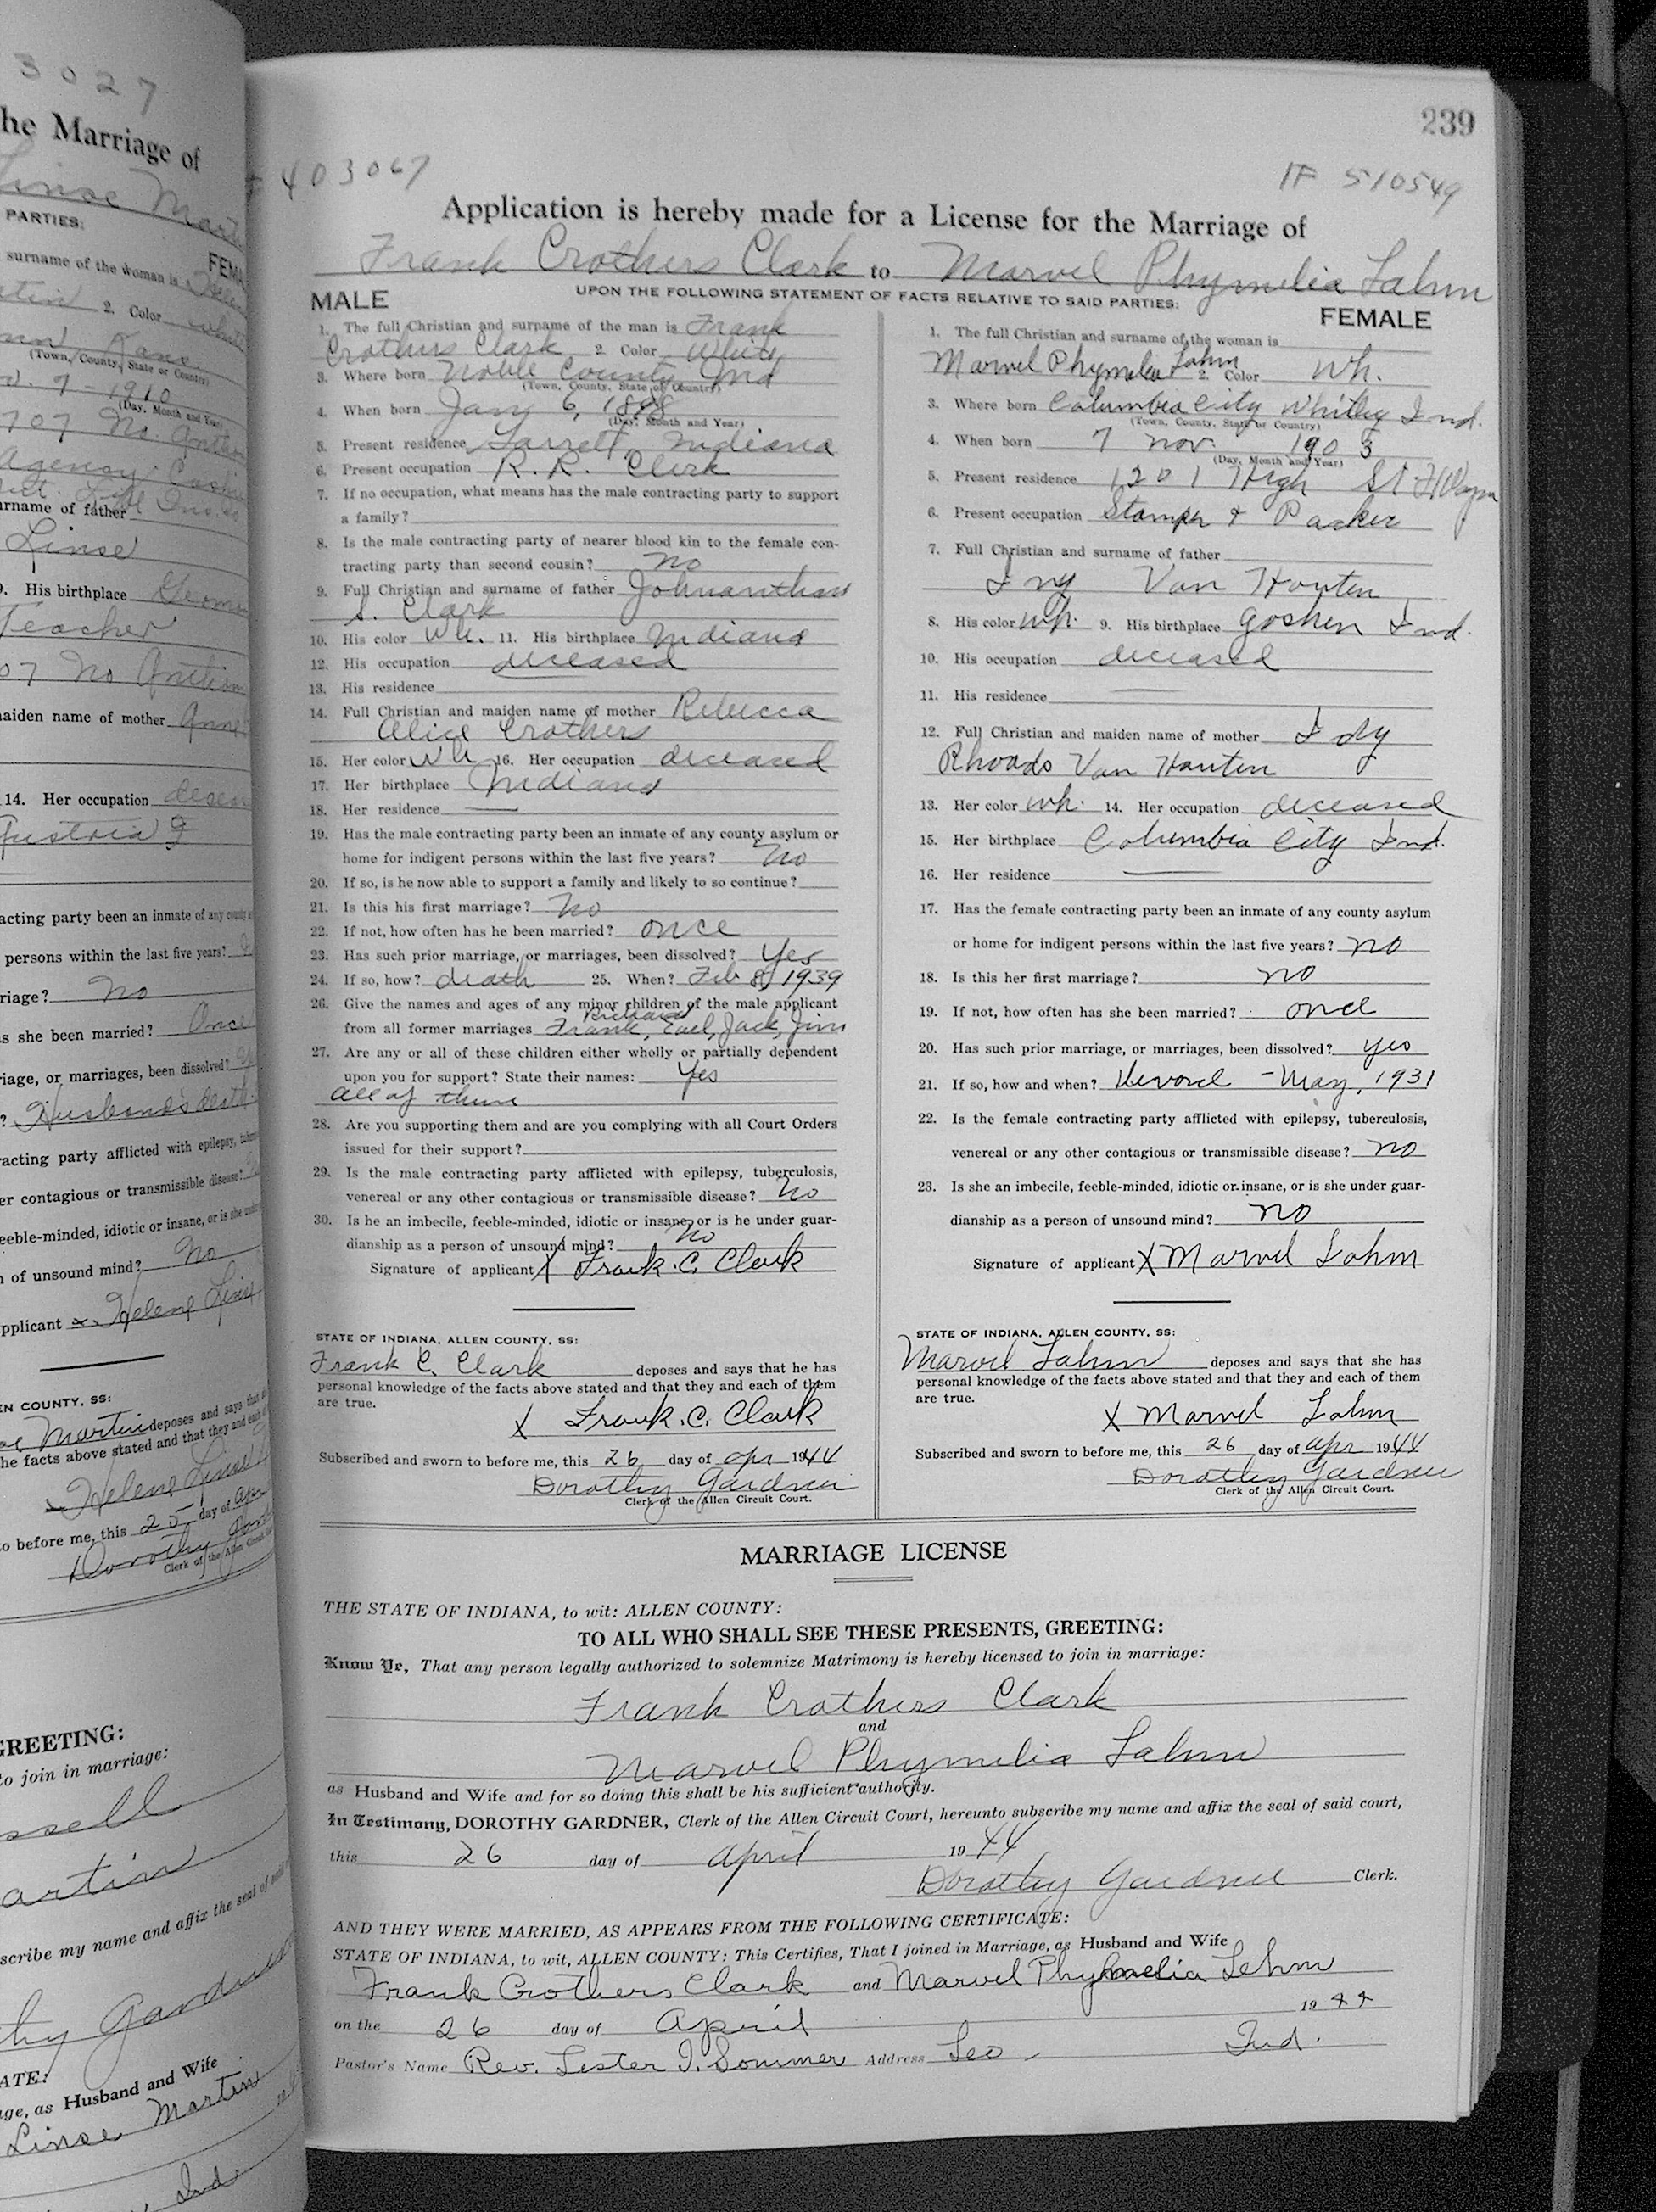 3027
he Marriage of
Linse Mart
PARTIES:
surname of the woman is
FEMA
2. Color
(Town, County, State or Country)
(Day, Month and Year)
707 No.
Agency
surname of father
Linse
9. His birthplace
Teacher
07 No
maiden name of mother
14. Her occupation
Austria
acting party been an inmate of any county
persons within the last five years?
riage? No
s she been married? Once
riage, or marriages, been dissolved?
? Husband's death
racting party afflicted with epilepsy,
er contagious or transmissible disease?
feeble-minded, idiotic or insane, or is she
n of unsound mind? No
applicant x. Helene Linse
EN COUNTY, SS:
Martin deposes and says that
he facts above stated and that they and each of
Helene Linse
to before me, this 25 day of apr
Dorothy
Clerk of the Allen Circuit
GREETING:
to join in marriage:
ssell
artin
scribe my name and affix the seal of
thy Gardner
ATE:
age, as Husband and Wife
Linse Martin
Ind.
239
403067
IF 510549
Application is hereby made for a License for the Marriage of
Frank Crothers Clark to Marvel Phymelia Lahm
UPON THE FOLLOWING STATEMENT OF FACTS RELATIVE TO SAID PARTIES:
MALE
1. The full Christian and surname of the man is Frank
Crothers Clark 2. Color White
3. Where born Noble County Ind
(Town, County, State or Country)
4. When born Jany 6, 1898
(Day, Month and Year)
5. Present residence Garrett, Indiana
6. Present occupation R.R. Clerk
7. If no occupation, what means has the male contracting party to support
a family?
8. Is the male contracting party of nearer blood kin to the female con-
tracting party than second cousin? no
9. Full Christian and surname of father Johnanthan
S. Clark
10. His color Wh. 11. His birthplace Indiana
12. His occupation deceased
13. His residence
14. Full Christian and maiden name of mother Rebecca
Alice Crothers
15. Her color Wh 16. Her occupation deceased
17. Her birthplace Indiana
18. Her residence —
19. Has the male contracting party been an inmate of any county asylum or
home for indigent persons within the last five years? no
20. If so, is he now able to support a family and likely to so continue?
21. Is this his first marriage? no
22. If not, how often has he been married? once
23. Has such prior marriage, or marriages, been dissolved? Yes
24. If so, how? death 25. When? Feb 8, 1939
26. Give the names and ages of any minor children of the male applicant
Richard
from all former marriages Frank, Earl, Jack, Jim
27. Are any or all of these children either wholly or partially dependent
upon you for support? State their names: Yes
all of them
28. Are you supporting them and are you complying with all Court Orders
issued for their support?
29. Is the male contracting party afflicted with epilepsy, tuberculosis,
venereal or any other contagious or transmissible disease? no
30. Is he an imbecile, feeble-minded, idiotic or insane, or is he under guar-
dianship as a person of unsound mind? no
Signature of applicant X Frank. C. Clark
STATE OF INDIANA, ALLEN COUNTY, SS:
Frank C. Clark deposes and says that he has
personal knowledge of the facts above stated and that they and each of them
are true.
X Frank. C. Clark
Subscribed and sworn to before me, this 26 day of apr 1944
Dorothy Gardner
Clerk of the Allen Circuit Court.
FEMALE
1. The full Christian and surname of the woman is
Marvel Phymelia Lahm 2. Color Wh.
3. Where born Columbia City Whitley Ind.
(Town, County, State or Country)
4. When born 7 nov. 1903
(Day, Month and Year)
5. Present residence 1201 High St Ft Wayne
6. Present occupation Stamper & Packer
7. Full Christian and surname of father
Van Houten
8. His color wh. 9. His birthplace Goshen Ind.
10. His occupation deceased
11. His residence —
12. Full Christian and maiden name of mother Idy
Rhoads Van Houten
13. Her color wh. 14. Her occupation deceased
15. Her birthplace Columbia City Ind.
16. Her residence —
17. Has the female contracting party been an inmate of any county asylum
or home for indigent persons within the last five years? no
18. Is this her first marriage? no
19. If not, how often has she been married? once
20. Has such prior marriage, or marriages, been dissolved? yes
21. If so, how and when? Devorce - May, 1931
22. Is the female contracting party afflicted with epilepsy, tuberculosis,
venereal or any other contagious or transmissible disease? no
23. Is she an imbecile, feeble-minded, idiotic or insane, or is she under guar-
dianship as a person of unsound mind? no
Signature of applicant X Marvel Lahm
STATE OF INDIANA, ALLEN COUNTY, SS:
Marvel Lahm deposes and says that she has
personal knowledge of the facts above stated and that they and each of them
are true.
X Marvel Lahm
Subscribed and sworn to before me, this 26 day of apr 1944
Dorothy Gardner
Clerk of the Allen Circuit Court.
MARRIAGE LICENSE
THE STATE OF INDIANA, to wit: ALLEN COUNTY:
TO ALL WHO SHALL SEE THESE PRESENTS, GREETING:
Know Ye, That any person legally authorized to solemnize Matrimony is hereby licensed to join in marriage:
Frank Crothers Clark
and
Marvel Phymelia Lahm
as Husband and Wife and for so doing this shall be his sufficient authority.
In Testimony, DOROTHY GARDNER, Clerk of the Allen Circuit Court, hereunto subscribe my name and affix the seal of said court,
this 26 day of April 1944
Dorothy Gardner Clerk.
AND THEY WERE MARRIED, AS APPEARS FROM THE FOLLOWING CERTIFICATE:
STATE OF INDIANA, to wit, ALLEN COUNTY: This Certifies, That I joined in Marriage, as Husband and Wife
Frank Crothers Clark and Marvel Phymelia Lehm
on the 26 day of April 1944
Pastor's Name Rev. Lester I. Sommer Address Leo, Ind.